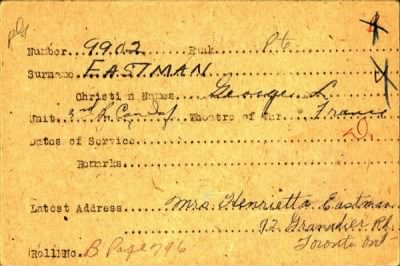 Number 9902 Rank Pte
Surname EASTMAN
Christian Names George L.
Unit 3rd Bn Can Inf Theatre of War France
Dates of Service
Remarks
Latest Address Mrs Henrietta Eastman
92 Grenadier Rd.
Toronto Ont
Roll No. B Page 796